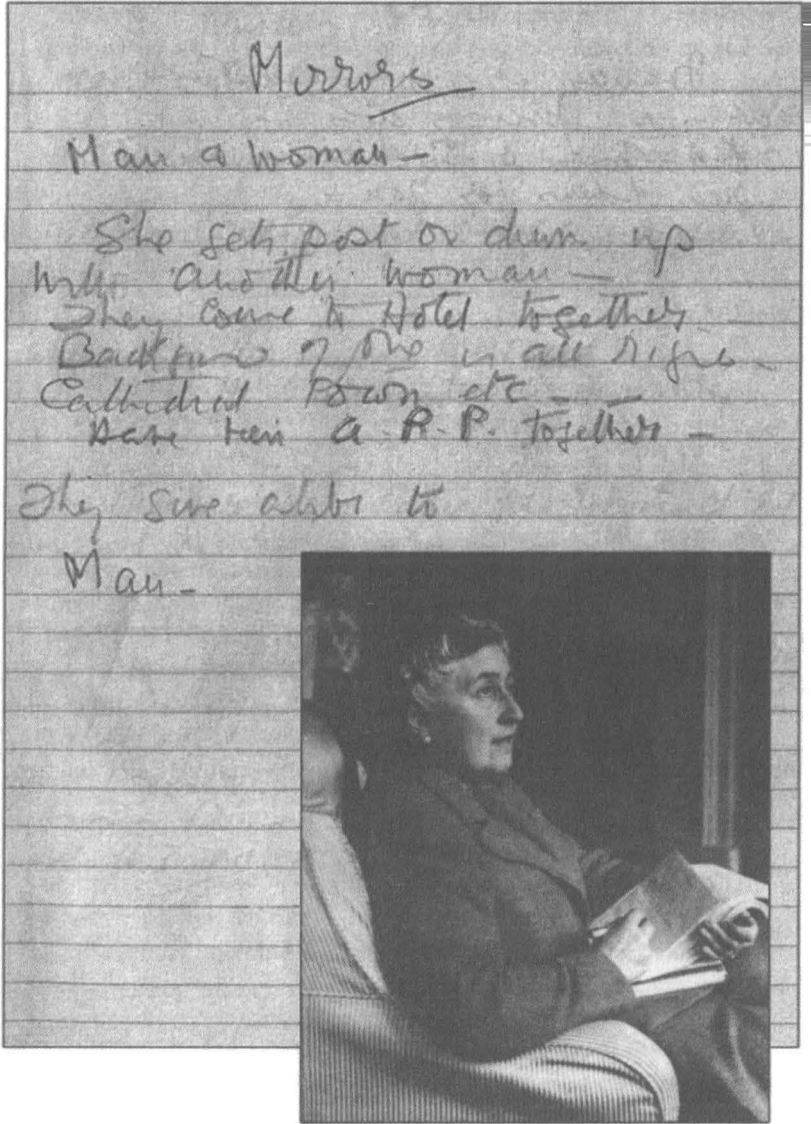 Mirrors
Man a woman –
She gets post or chum up
with another woman –
They come to Hotel together
Background of one is all right –
Cathedral Town etc – –
Have been A.R.P. together –
They give alibi to
Man –